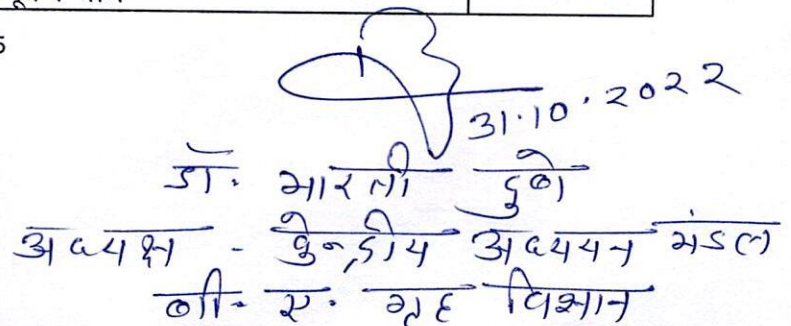 31.10.2022
डॉ. भारती दुबे
अध्यक्ष - केन्द्रीय अध्ययन मंडल
बी. ए. गृह विज्ञान